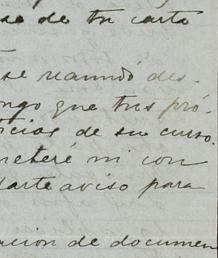 se de tu carta
se reanudó des-
ongo que tus pró-
icias de su curso.
meteré mi con
darte aviso para
acion de documen